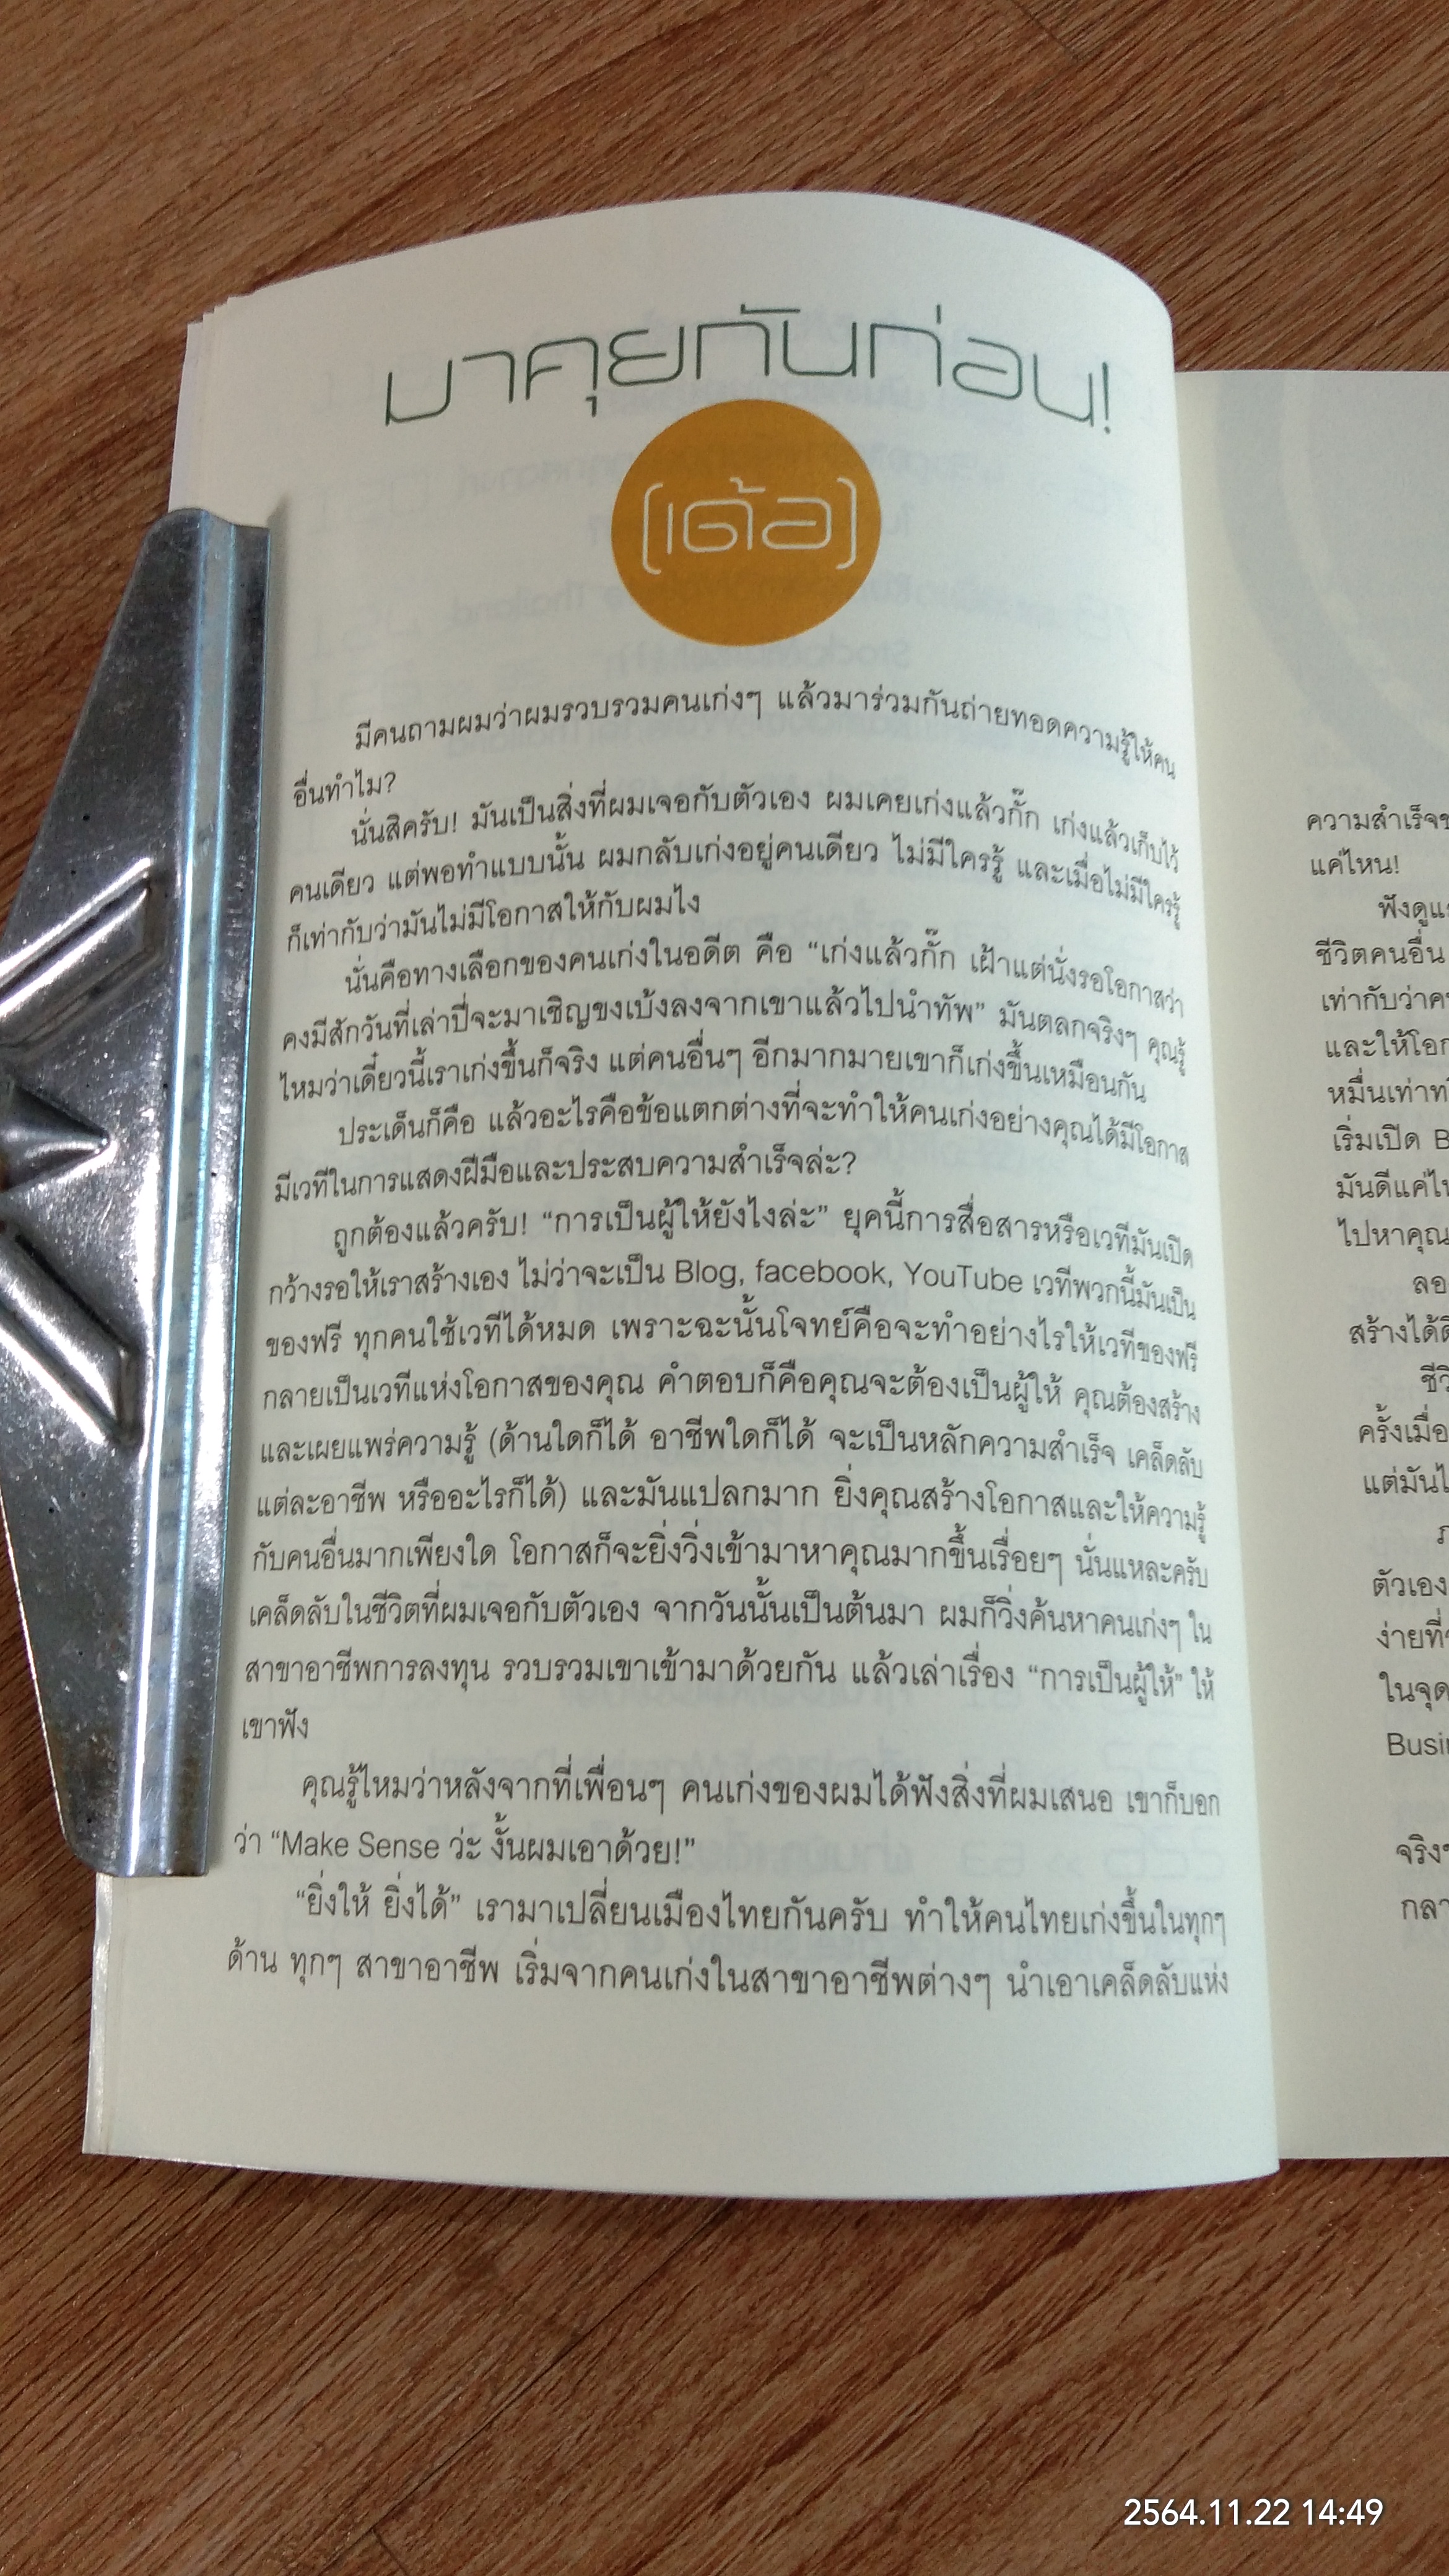 มาคุยกันก่อน!
(เต้อ)
มีคนถามผมว่าผมรวบรวมคนเก่งๆ แล้วมาร่วมกันถ่ายทอดความรู้ให้คน
อื่นทำไม?
นั่นสิครับ! มันเป็นสิ่งที่ผมเจอกับตัวเอง ผมเคยเก่งแล้วกั๊ก เก่งแล้วเก็บไว้
คนเดียว แต่พอทำแบบนั้น ผมกลับเก่งอยู่คนเดียว ไม่มีใครรู้ และเมื่อไม่มีใครรู้
ก็เท่ากับว่ามันไม่มีโอกาสให้กับผมไง
นั่นคือทางเลือกของคนเก่งในอดีต คือ “เก่งแล้วกั๊ก เฝ้าแต่นั่งรอโอกาสว่า
คงมีสักวันที่เล่าปี่จะมาเชิญขงเบ้งลงจากเขาแล้วไปนำทัพ” มันตลกจริงๆ คุณรู้
ไหมว่าเดี๋ยวนี้เราเก่งขึ้นก็จริง แต่คนอื่นๆ อีกมากมายเขาก็เก่งขึ้นเหมือนกัน
ประเด็นก็คือ แล้วอะไรคือข้อแตกต่างที่จะทำให้คนเก่งอย่างคุณได้มีโอกาส
มีเวทีในการแสดงฝีมือและประสบความสำเร็จล่ะ?
ถูกต้องแล้วครับ! “การเป็นผู้ให้ยังไงล่ะ” ยุคนี้การสื่อสารหรือเวทีมันเปิด
กว้างรอให้เราสร้างเอง ไม่ว่าจะเป็น Blog, facebook, YouTube เวทีพวกนี้มันเป็น
ของฟรี ทุกคนใช้เวทีได้หมด เพราะฉะนั้นโจทย์คือจะทำอย่างไรให้เวทีของฟรี
กลายเป็นเวทีแห่งโอกาสของคุณ คำตอบก็คือคุณจะต้องเป็นผู้ให้ คุณต้องสร้าง
และเผยแพร่ความรู้ (ด้านใดก็ได้ อาชีพใดก็ได้ จะเป็นหลักความสำเร็จ เคล็ดลับ
แต่ละอาชีพ หรืออะไรก็ได้) และมันแปลกมาก ยิ่งคุณสร้างโอกาสและให้ความรู้
กับคนอื่นมากเพียงใด โอกาสก็จะยิ่งวิ่งเข้ามาหาคุณมากขึ้นเรื่อยๆ นั่นแหละครับ
เคล็ดลับในชีวิตที่ผมเจอกับตัวเอง จากวันนั้นเป็นต้นมา ผมก็วิ่งค้นหาคนเก่งๆ ใน
สาขาอาชีพการลงทุน รวบรวมเขาเข้ามาด้วยกัน แล้วเล่าเรื่อง “การเป็นผู้ให้” ให้
เขาฟัง
คุณรู้ไหมว่าหลังจากที่เพื่อนๆ คนเก่งของผมได้ฟังสิ่งที่ผมเสนอ เขาก็บอก
ว่า “Make Sense ว่ะ งั้นผมเอาด้วย!”
“ยิ่งให้ ยิ่งได้” เรามาเปลี่ยนเมืองไทยกันครับ ทำให้คนไทยเก่งขึ้นในทุกๆ
ด้าน ทุกๆ สาขาอาชีพ เริ่มจากคนเก่งในสาขาอาชีพต่างๆ นำเอาเคล็ดลับแห่ง
ความสำเร็จ
แค่ไหน!
ฟังดู
ชีวิตคนอื่น
เท่ากับว่า
และให้
หมื่นเท่า
เริ่มเปิด
มันดี
ไปหาคุณ
สร้างได้
ครั้งเมื่อ
แต่มัน
ตัวเอง
ง่ายที่
ในจุด
2564.11.22 14:49